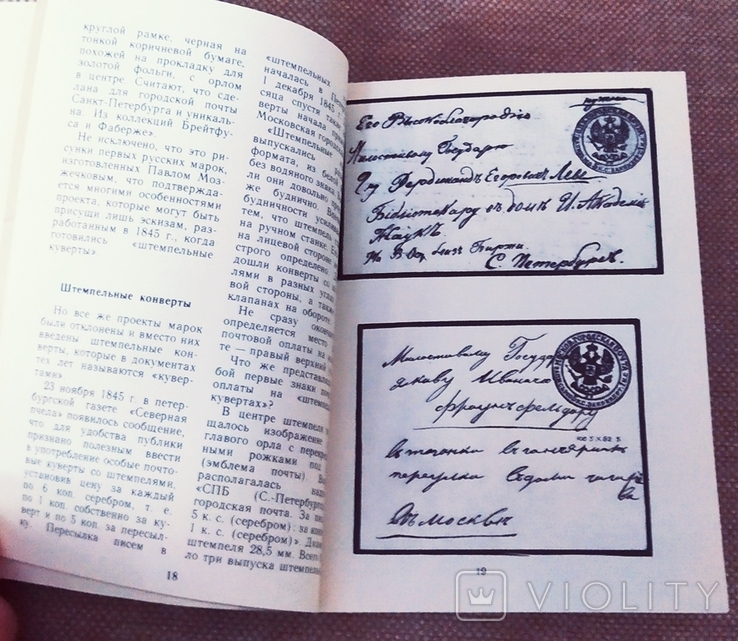 круглой рамке, черная на
тонкой коричневой бумаге,
похожей на прокладку для
золотой фольги, с орлом
в центре Считают, что сде-
лана для городской почты
Санкт-Петербурга и уникаль-
на Из коллекций Брейтфу-
са и Фаберже».
Не исключено, что это ри-
сунки первых русских марок,
изготовленных Павлом Моз-
жечковым, что подтвержда-
ется многими особенностями
проекта, которые могут быть
присущи лишь эскизам, раз-
работанным в 1845 г., когда
готовились «штемпельные
куверты»
Штемпельные конверты
Но все же проекты марок
были отклонены и вместо них
введены штемпельные кон-
верты, которые в документах
тех лет называются «кувер-
тами»
23 ноября 1845 г. в петер-
бургской газете «Северная
пчела» появилось сообщение,
что для удобства публики
признано полезным ввести
в употребление особые почто-
вые куверты со штемпелями,
установив цену за каждый
по 6 коп. серебром, т. е.
по 1 коп. собственно за ку-
верт и по 5 коп. за пересыл-
ку. Пересылка писем в
«штемпельных
началась в Пе
1 декабря 1845
сяца спустя так
верты начала п
Московская городс
«Штемпельные
выпускались
формата, из бело
без водяного знака.
ли они довольно п
же буднично. В
будничности усили
тем, что штемпел
на ручном станке.
на лицевой стороне
строго определено
дошли конверты со
лями в разных
вой стороны, а так
клапанах на обороте
Не сразу оконч
определяется место
почтовой оплаты на
те — правый верхний
Что же представля
бой первые знаки по
оплаты на «штемп
кувертах»?
В центре штемпеля
щалось изображение
главого орла с перекр
ными рожками под
(эмблема почты). В
располагалась над
«СПБ (С.-Петербург
городская почта. За пи
5 к. с. (серебром): за кон
1 к. с. (серебром)». Диам
штемпеля 28,5 мм. Всего б
ло три выпуска штемпельн
18
Его Высокоблагородию
Милостивому Государю
Фердинанду Егоровичу Леве
Библиотекарю в домъ И. Академiи
Наукъ
На В. О. близ Биржи.
С. Петербургъ.
Милостивому Госуда
Якову Ивановичу
въ Москвѣ
19
VIOLITY